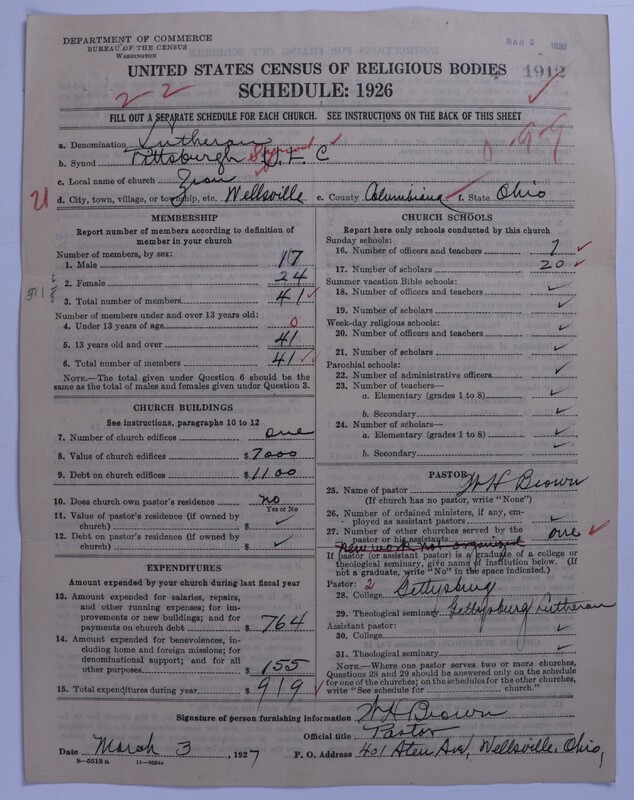 DEPARTMENT OF COMMERCE
BUREAU OF THE CENSUS
WASHINGTON
UNITED STATES CENSUS OF RELIGIOUS BODIES
1912
SCHEDULE: 1926
2-2
FILL OUT A SEPARATE SCHEDULE FOR EACH CHURCH. SEE INSTRUCTIONS ON THE BACK OF THIS SHEET
a. Denomination Lutheran
b. Synod Pittsburgh Synod U. L. C
c. Local name of church Zion
d. City, town, village, or township, etc. Wellsville e. County Columbiana f. State Ohio
MEMBERSHIP
Report number of members according to definition of
member in your church
Number of members, by sex:
1. Male 17
2. Female 24
3. Total number of members 41
Number of members under and over 13 years old:
4. Under 13 years of age 0
5. 13 years old and over 41
6. Total number of members 41
NOTE.—The total given under Question 6 should be
the same as the total of males and females given under Question 3.
CHURCH BUILDINGS
See instructions, paragraphs 10 to 12
7. Number of church edifices one
8. Value of church edifices $ 7000
9. Debt on church edifices $ 1100
10. Does church own pastor's residence? no
Yes or No
11. Value of pastor's residence (if owned by
church) $ ✓
12. Debt on pastor's residence (if owned by
church) $ ✓
EXPENDITURES
Amount expended by your church during last fiscal year
13. Amount expended for salaries, repairs,
and other running expenses; for im-
provements or new buildings; and for
payments on church debt $ 764
14. Amount expended for benevolences, in-
cluding home and foreign missions; for
denominational support; and for all
other purposes $ 155
15. Total expenditures during year $ 919
CHURCH SCHOOLS
Report here only schools conducted by this church
Sunday schools:
16. Number of officers and teachers 7
17. Number of scholars 20
Summer vacation Bible schools:
18. Number of officers and teachers ✓
19. Number of scholars ✓
Week-day religious schools:
20. Number of officers and teachers ✓
21. Number of scholars ✓
Parochial schools:
22. Number of administrative officers ✓
23. Number of teachers—
a. Elementary (grades 1 to 8) ✓
b. Secondary ✓
24. Number of scholars—
a. Elementary (grades 1 to 8) ✓
b. Secondary ✓
PASTOR
25. Name of pastor W H Brown
(If church has no pastor, write "None")
26. Number of ordained ministers, if any, em-
ployed as assistant pastors ✓
27. Number of other churches served by the
pastor or his assistants one
new work not organized
If pastor (or assistant pastor) is a graduate of a college or
theological seminary, give name of institution below. (If
not a graduate, write "No" in the space indicated.)
Pastor: 2
28. College Gettysburg
29. Theological seminary Gettysburg Lutheran
Assistant pastor:
30. College ✓
31. Theological seminary ✓
NOTE.—Where one pastor serves two or more churches,
Questions 28 and 29 should be answered only on the schedule
for one of the churches; on the schedules for the other churches,
write "See schedule for church."
Signature of person furnishing information W H Brown
Official title Pastor
Date March 3, 1927 P. O. Address 401 Aten Ave, Wellsville, Ohio,